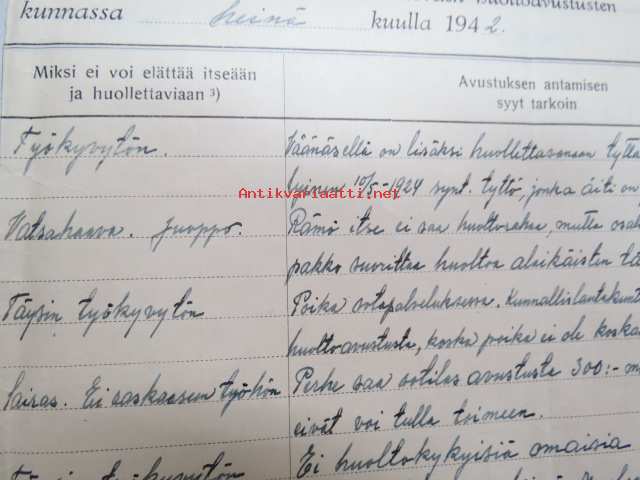 huoltoavustusten
kunnassa heinä kuulla 1942.
Miksi ei voi elättää itseään
ja huollettaviaan ³)
Avustuksen antamisen
syyt tarkoin
Työkyvytön.
Väänäsellä on lisäksi huollettavanaan tyttä
10/5-1924 synt. tyttö, jonka äiti on
Antikvariaatti.net
Vatsahaava. Juoppo.
Rämö itse ei saa huoltorahaa, mutta
pakko suorittaa huoltoa alaikäisten
Täysin työkyvytön
Poika sotapalveluksessa. Kunnallislautakunt
huoltoavustusta, koska poika ei ole koskaa
Sairas. Ei raskaaseen työhön
Perhe saa sotilas avustusta 300:- m
eivät voi tulla toimeen.
Ei huoltokykyisiä omaisia
työkyvytön